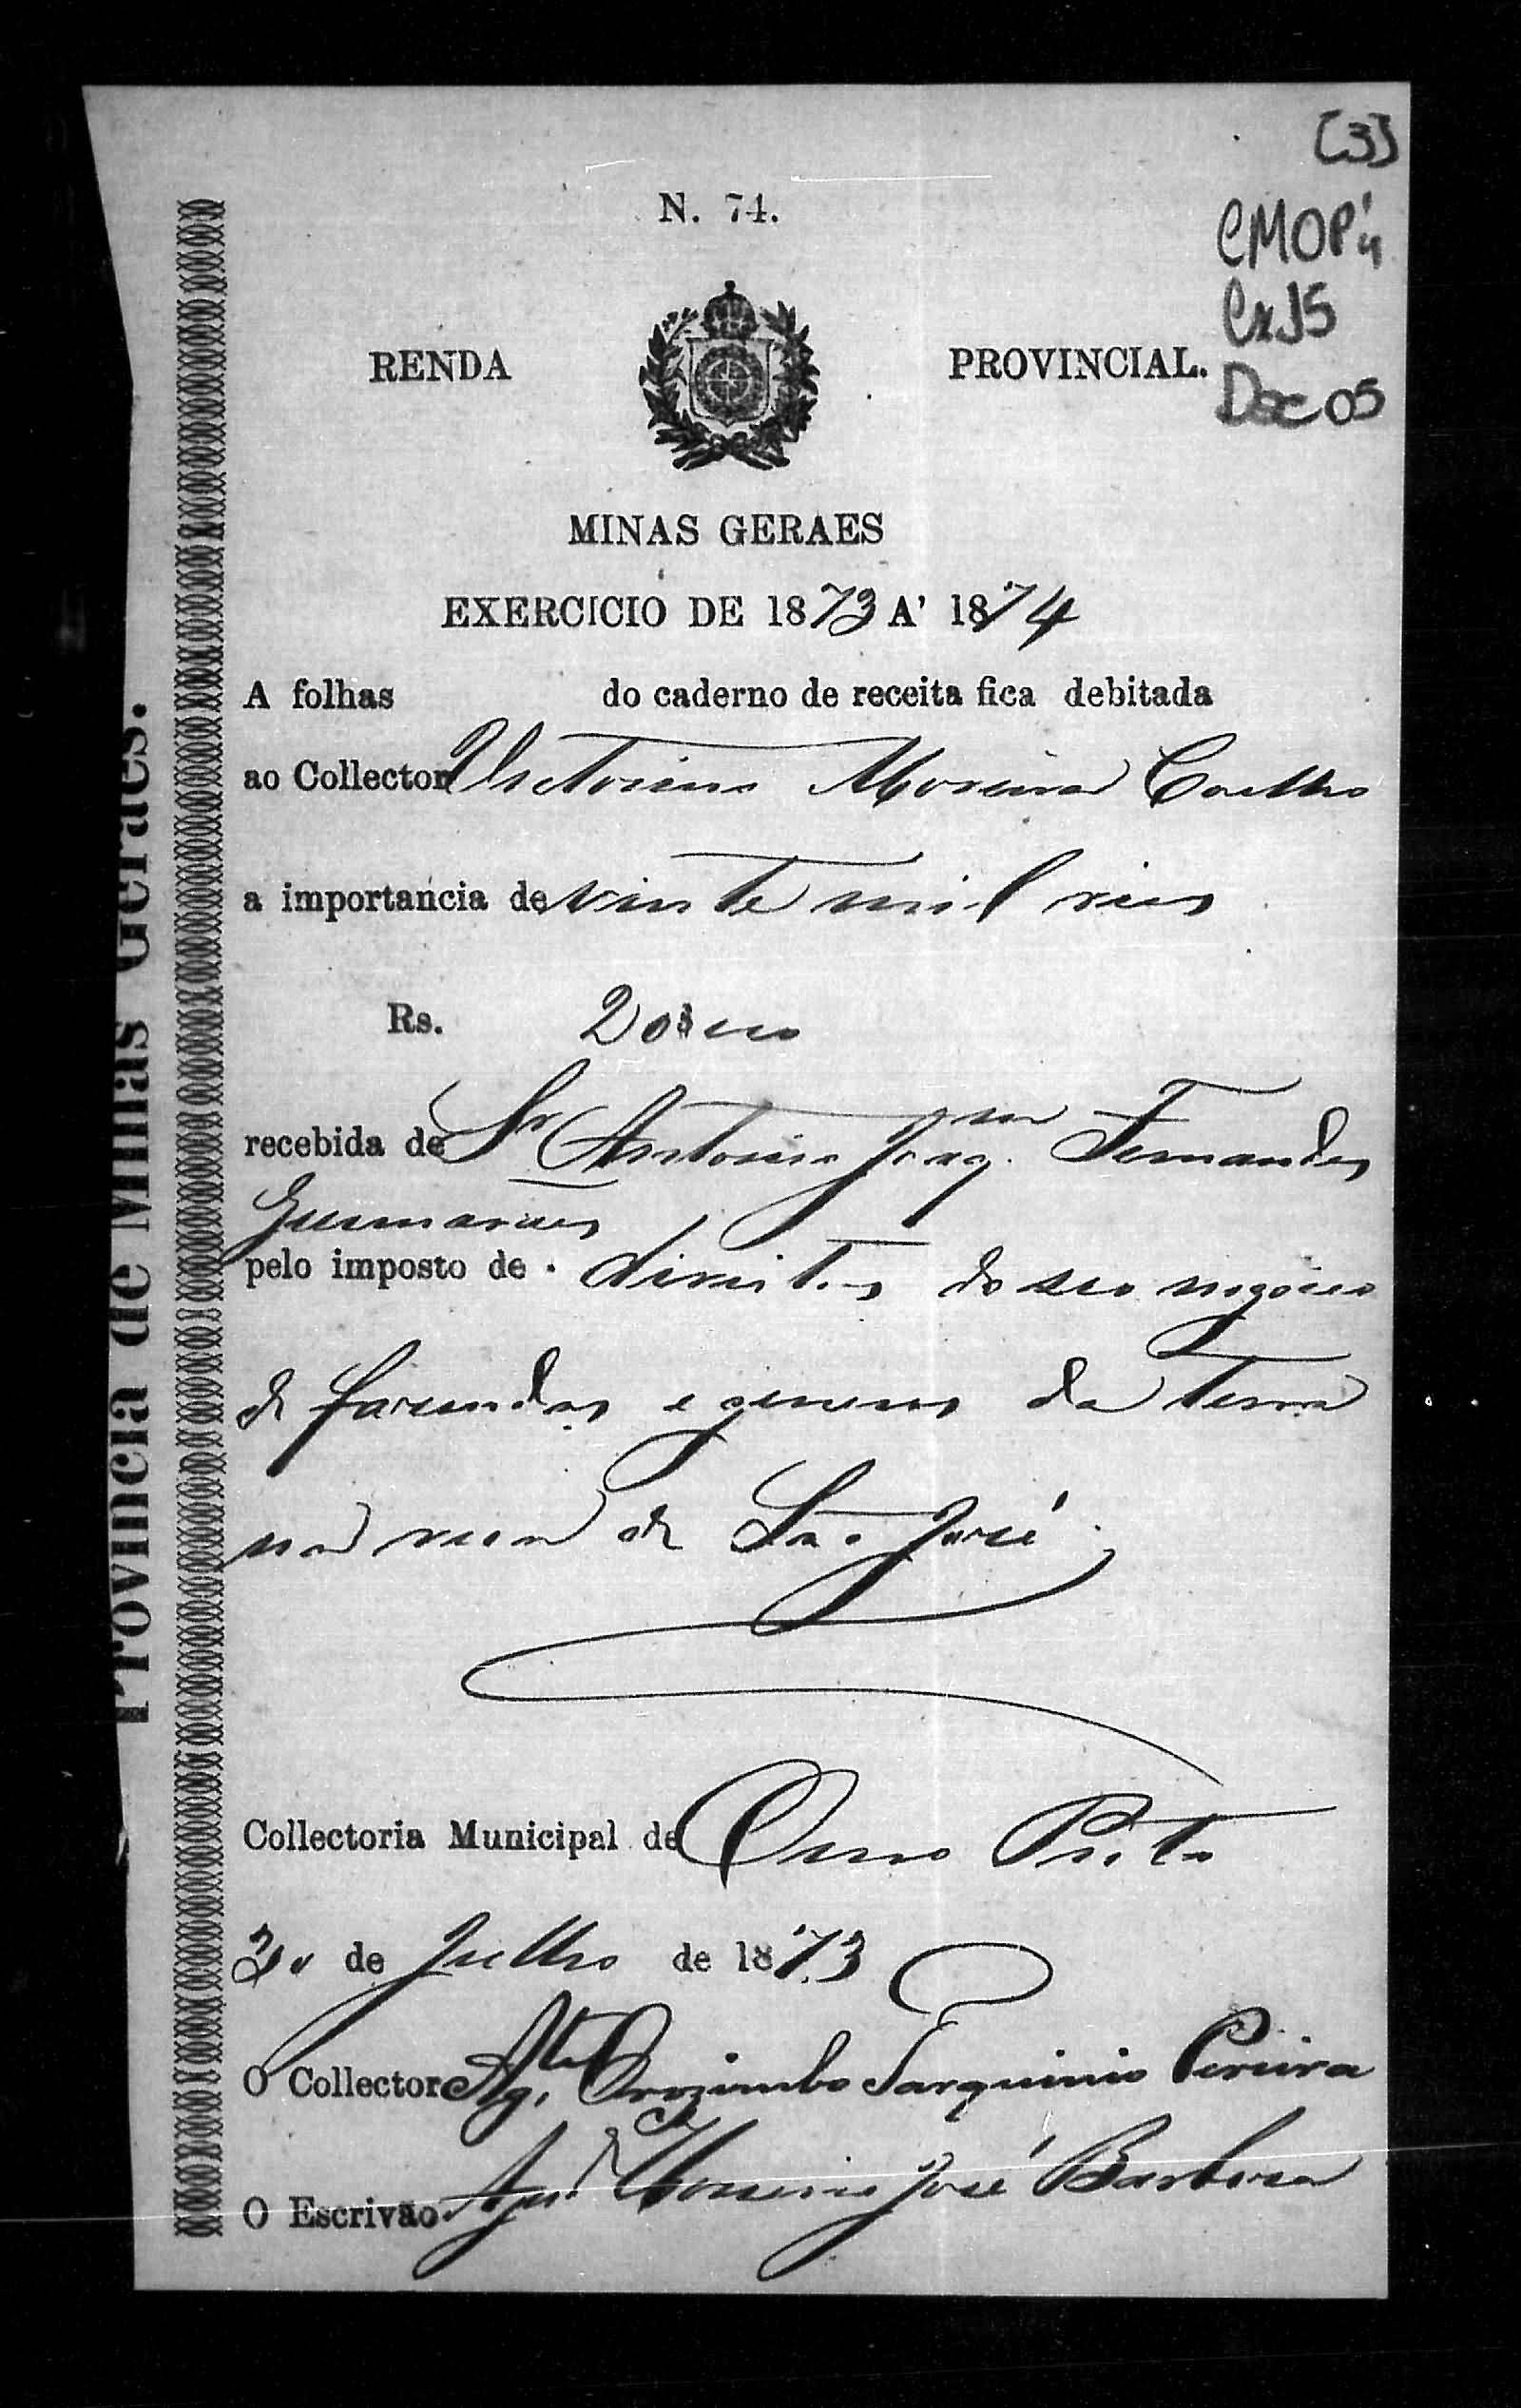 [3]
CMOP 4
Cx 15
Doc 05
N. 74.
RENDA PROVINCIAL.
MINAS GERAES
EXERCICIO DE 1873 A' 1874
A folhas do caderno de receita fica debitada
ao Collector Victorino Moreira Coelho
a importancia de vinte mil reis
Rs. 20$000
recebida de Sr Antonio Joaqm Fernandes
Guimarães
pelo imposto de direitos do seo negocio
de fasendas e generos da terra
na rua de São José
Collectoria Municipal de Ouro Preto
30 de Julho de 1873
O Collector Agte Orozimbo Tarquinio Pereira
O Escrivão José Barbosa
Provincia de Minas Geraes.